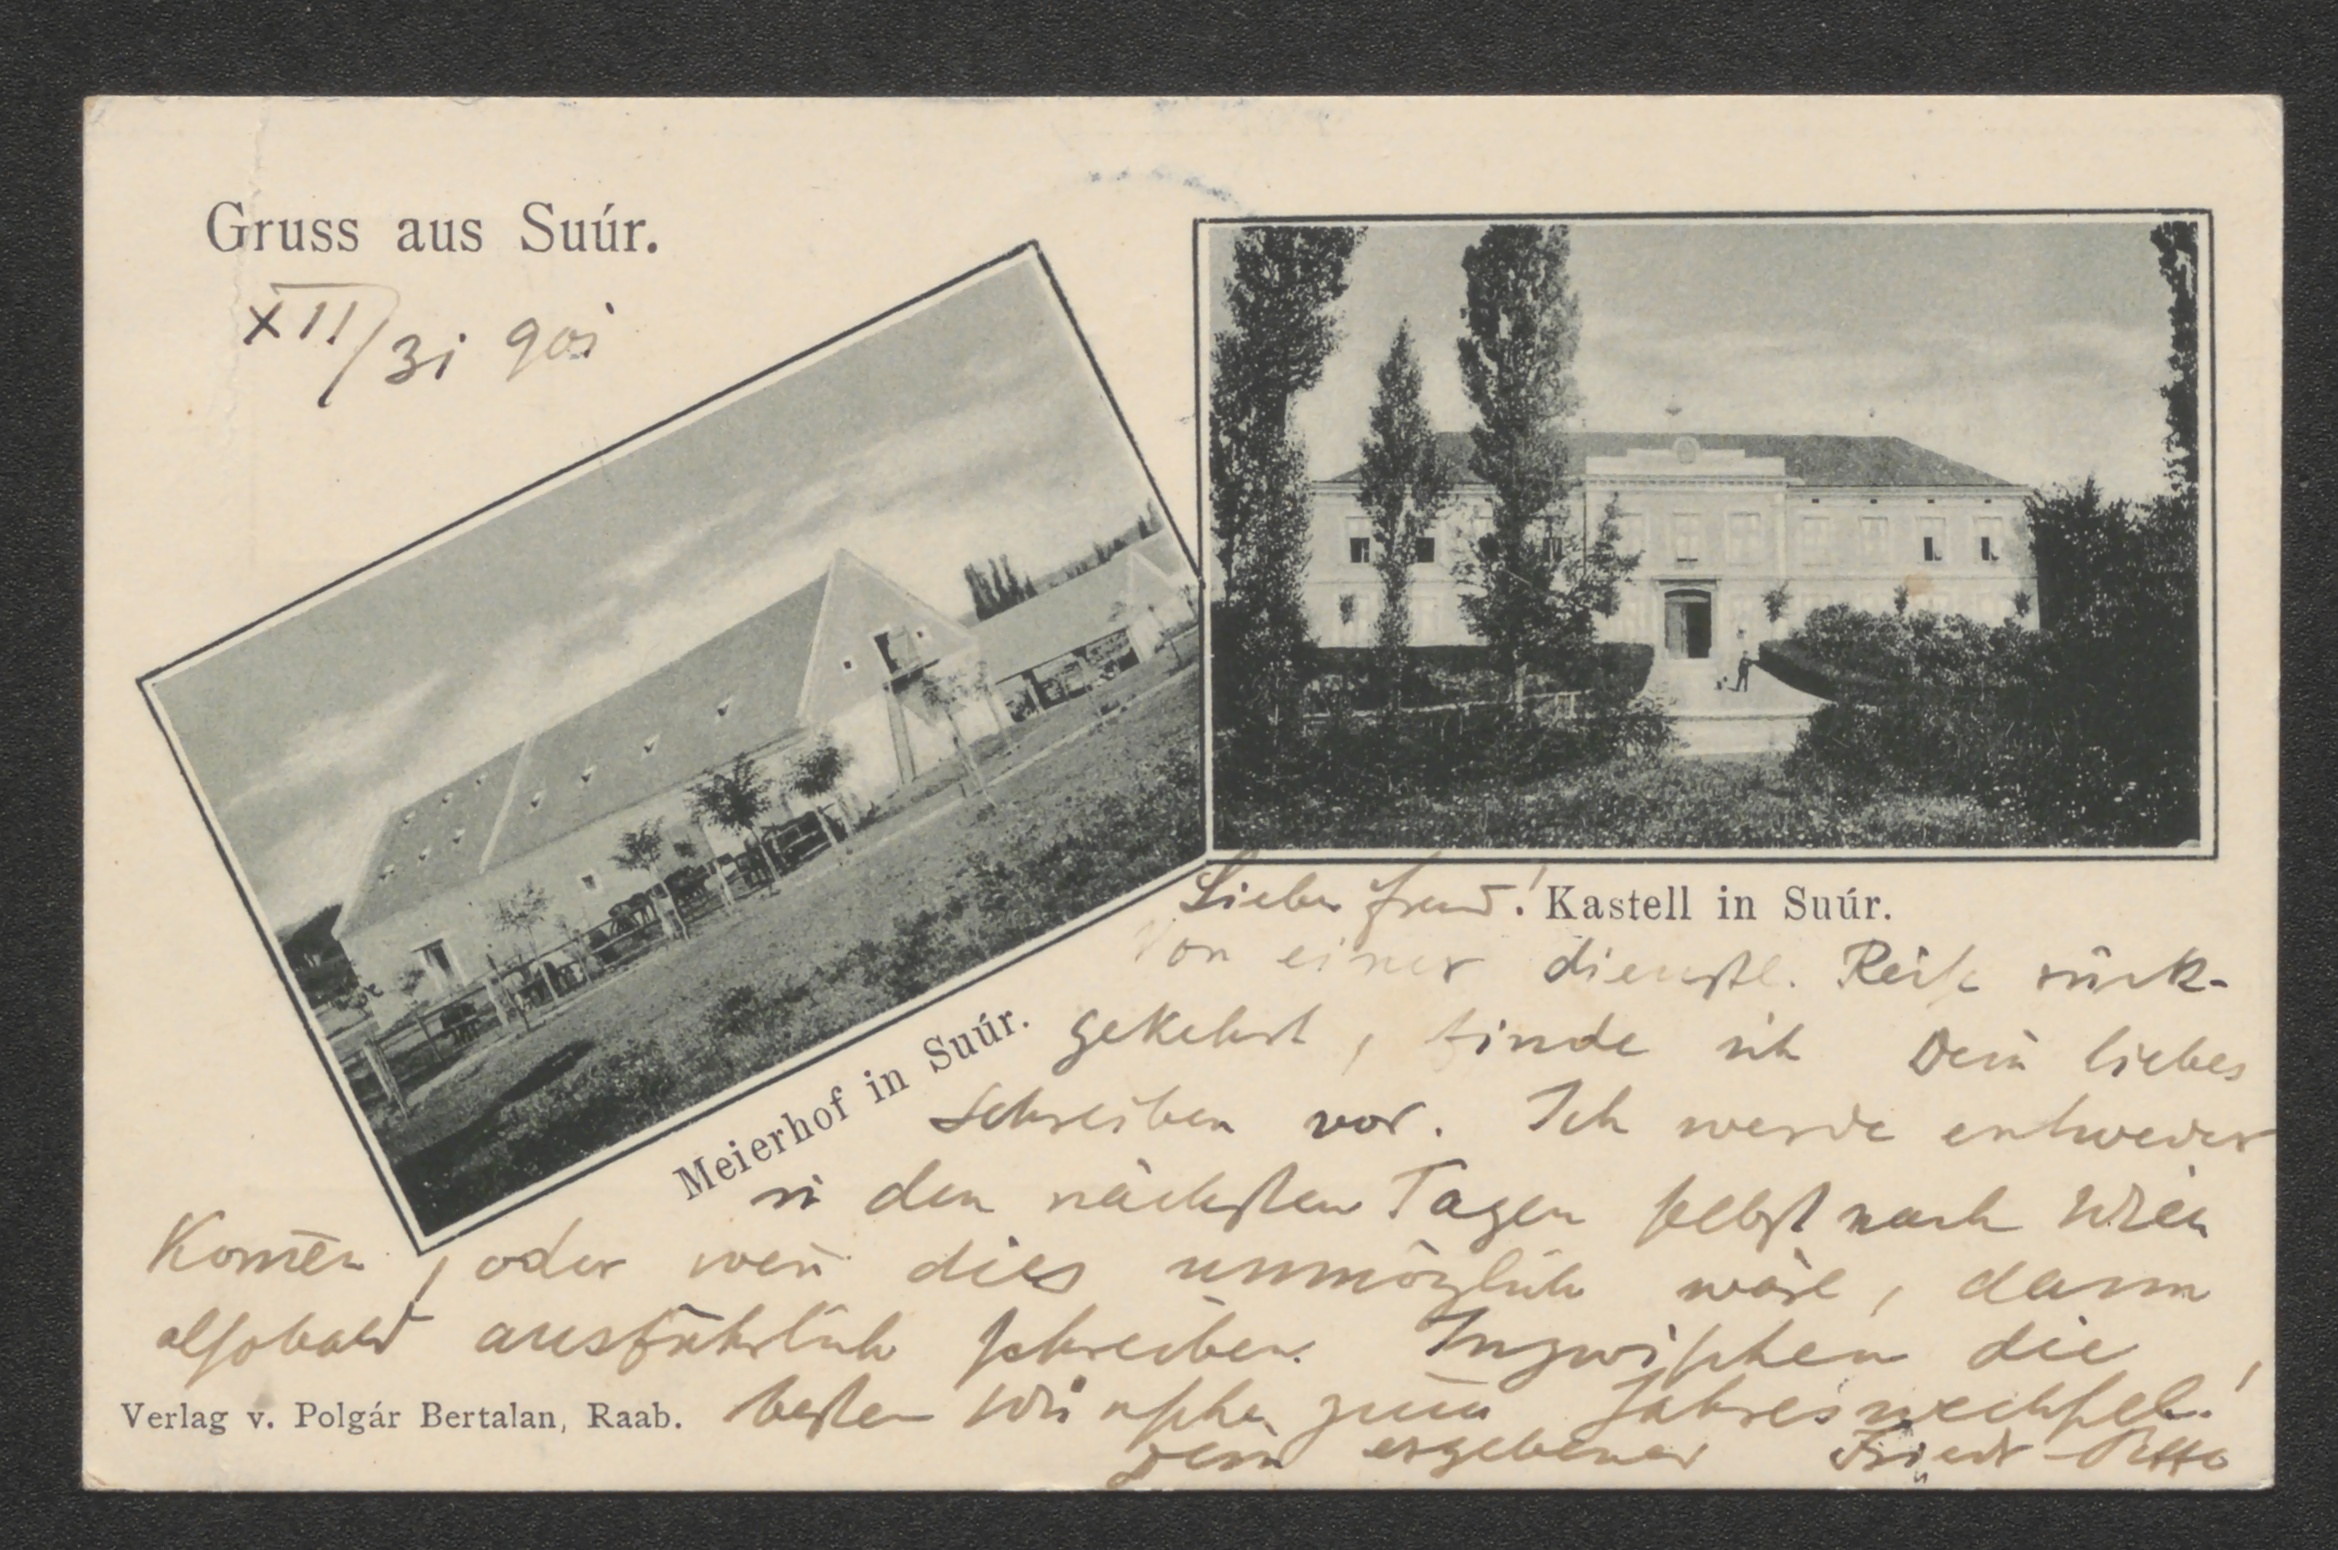 Gruss aus Suúr.
XII/31 901
Kastell in Suúr.
Meierhof in Suúr.
Lieber Freund!
Von einer dienstl. Reise rück-
gekehrt, finde ich Dein liebes
Schreiben vor. Ich werde entweder
in den nächsten Tagen selbst nach Wien
kom̄en, oder wen̄ dies unmöglich wäre, dann
alsobald ausführlich schreiben. Inzwischen die
besten Wünsche zum Jahreswechsel!
Dein ergebener
Verlag v. Polgár Bertalan, Raab.